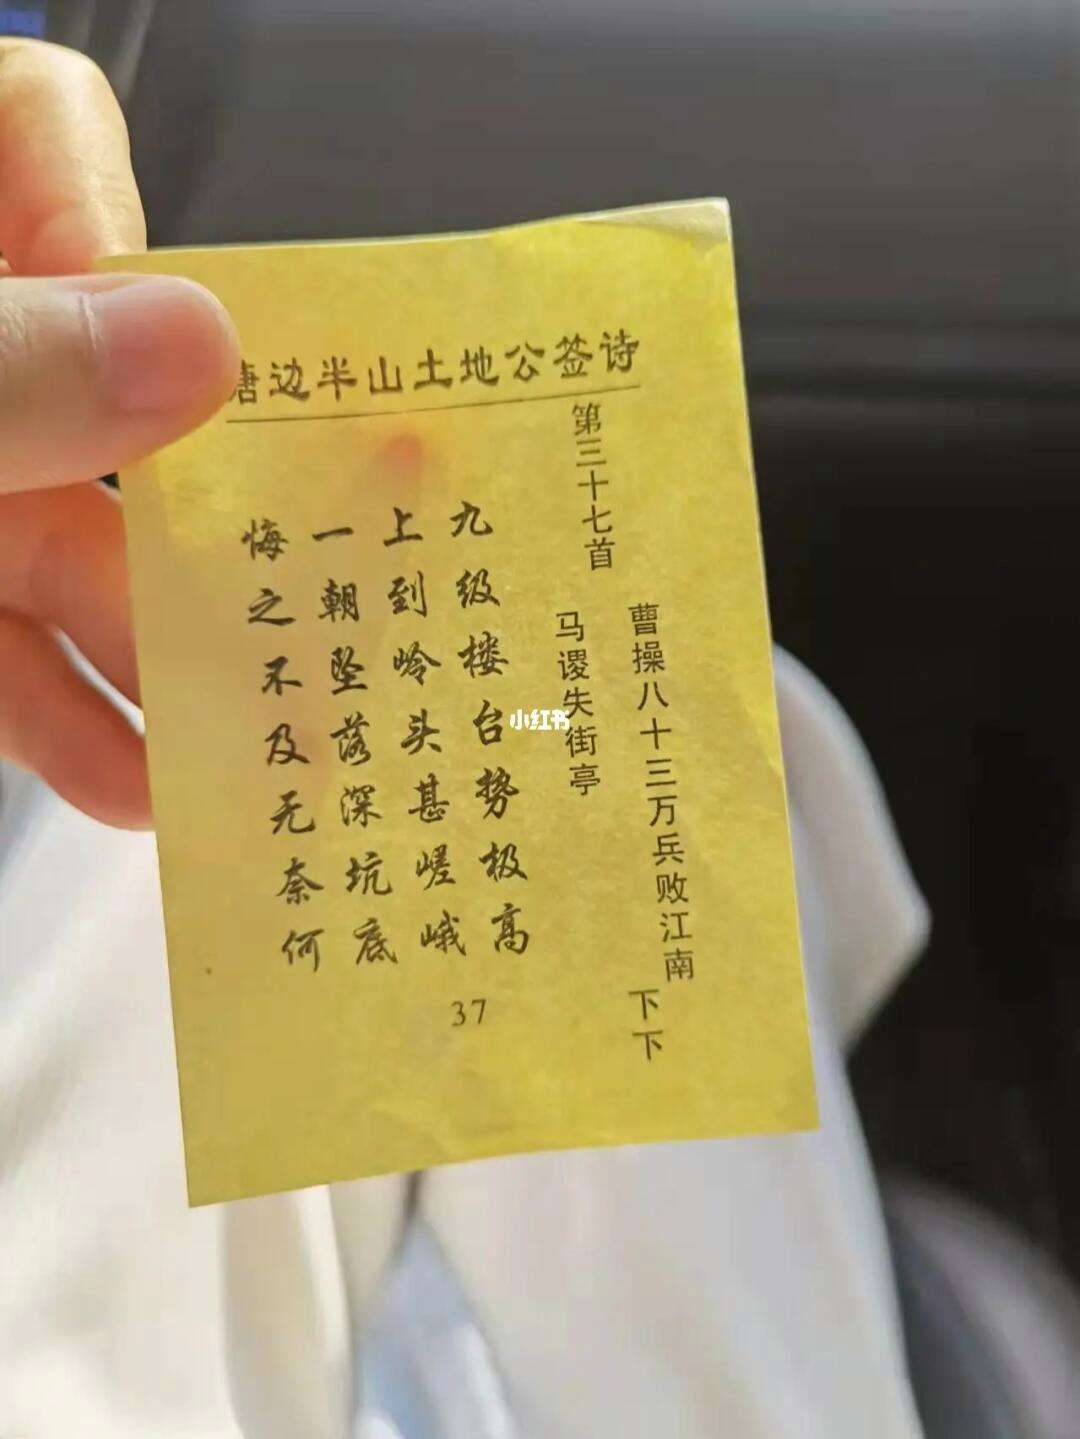 塘边半山土地公签诗
第三十七首
曹操八十三万兵败江南
马谡失街亭
下下
九级楼台势极高
上到岭头甚嵯峨
一朝坠落深坑底
悔之不及无奈何
37
小红书